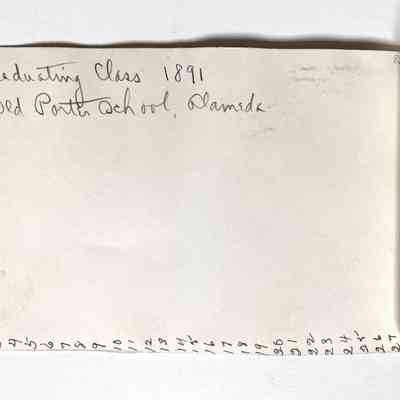 eduating Class 1891
Old Porter School, Alameda
4 5 6 7 8 9 10 11 12 13 14 15 16 17 18 19 20 21 22 23 24 25 26 27